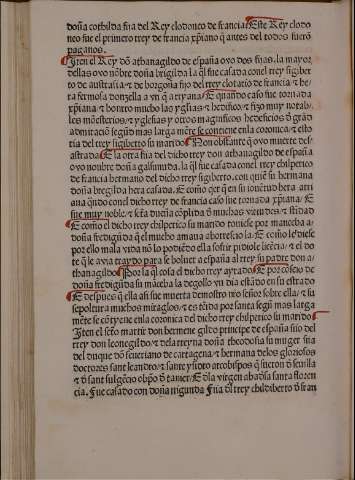 doña cothilda fija del Rey clodoneo de francia. Este Rey clodo
neo fue el primero rrey de francia xp̄iano q̄ antes del todos fuerō
paganos.
Iten el Rey dō athanagildo de españa ovo dos fijas. la mayor
dellas ovo nōbre doña brigilda la q̄l fue casada conel rrey sigiber
to de austrasia / & de borgoña fijo del rrey clotario de francia / & he
ra fermosa donzella avn q̄ arryana. E quando caso fue tornada
xp̄iana / & honrro mucho las yglesias / & hedifico / & fizo muy notab
les mōesterios / & yglesias y otros magnificos hedeficios d̄ grād
admiraciō segund mas larga mēte se contiene enla coronica / & esto
ria del rrey sigiberto su marido. Non obstāte q̄ ovo muerte des
astrada. E la otra fija del dicho rrey don athanagildo de españa
ovo nonbre doña galsuinda. la q̄l fue casada conel rrey chilperico
de francia hermano del dicho rrey sigiberto. con quiē su hermana
doña bregilda hera casada. E como q̄er q̄ en su iouētud hera arri
ana quādo conel dicho rrey de francia caso fue tornada xp̄iana / E
fue muy noble / & sc̄tā dueña cōplida d̄ muchas virtudes / & estādo
E como el dicho rrey chilperico su marido toviese por manceba a
doña fredigūda q̄ el mucho amaua aborresciola. E como le diese
por ello mala vida nō lo podiēdo ella sofrir pidiole licēcia / & el do
te q̄ le avia traydo para se bolver a españa al rrey su padre don a
thanagildo. Por la q̄l cosa el dicho rrey ayrado. E por cōseio de
doña fredigūda su māceba la degollo vn dia estādo en su estrado
E despues q̄ ella asi fue muerta demostro nr̄o señor sobre ella / & su
sepoltura muchos miraglos / & es tēida por santa segū mas larga
mēte se cōtyene enla coronica del dicho rrey chilperico su marido.
Iten el sctō martir don hermene gildo principe de españa fijo del
rrey don leonegildo / & dela rreyna doña theodosia su muger fija
del duque dō seueriano de cartagena / & hermana delos gloriosos
doctores sant leandro / & sante ysidro arcobispos q̄ fueron d̄ seuilla
& d̄ sant fulgēcio obpō d̄ / E dla virgen abadesa santa floren
cia. Fue casado con doña ingunda Fija dl rrey childiberto d̄ fran